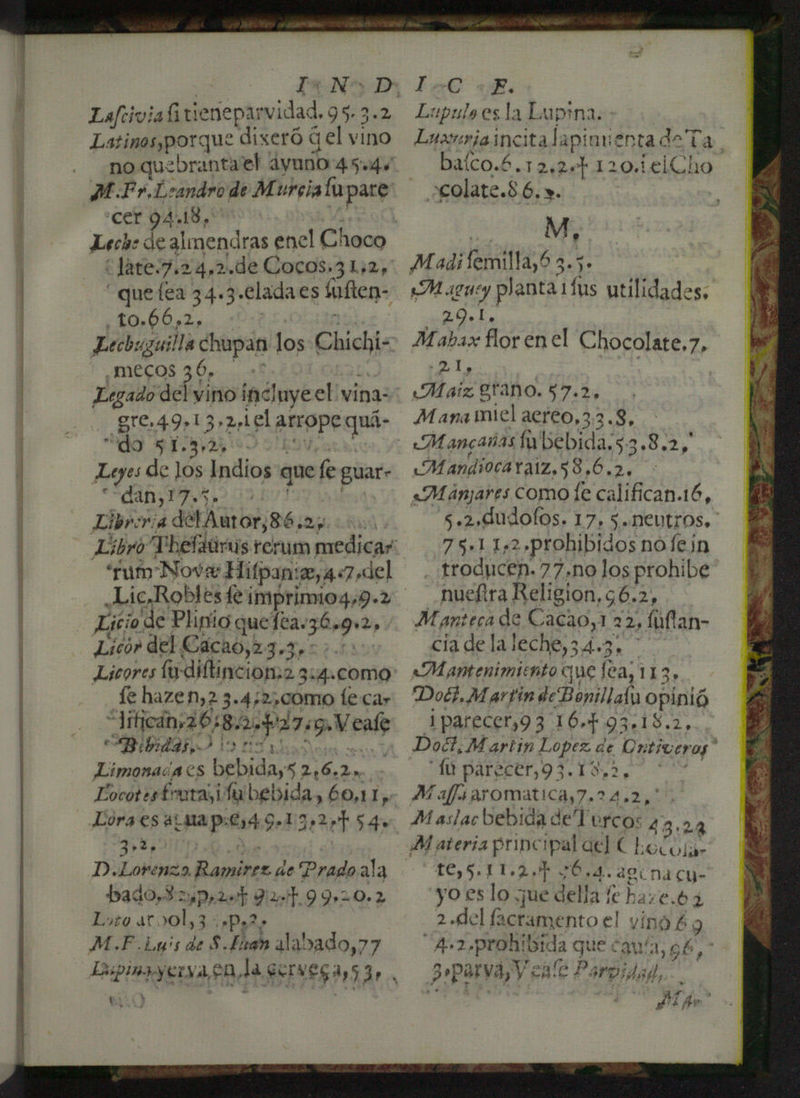 IN D I C E.
Lasciuia si tiene parvidad. 95.3.2
Latinos, porque dixerõ q̃ el vino
no quebranta el ayuno 45.4.
M. Fr. Leandro de Murcia su pare
cer 94.18.
Leche de almendras en el Choco
late. 7. 24, 2. de Cocos. 31, 2,
que sea 34. 3. elada es susten-
to. 66, 2,
Lechuguilla chupan los Chichi-
mecos 36.
Legado del vino incluye el vina-
gre, 49, 13, 2, i el arrope quã-
do 51. 3, 2,
Leyes de los Indios que se guar-
dan, 17. 5.
Libreria del Autor, 86. 2,
Libro Thesaurus rerum medicar
rum Novæ Hispaniæ, 4. 7, del
Lic. Robles se imprimio 4, 9. 2
Licio de Plinio que sea. 36. 9. 2,
Licòr del Cacao, 23, 3,
Licores su distincion. 2 3. 4. como
se hazen, 2 3. 4, 2, como se ca-
lifican, 26. 8. 2. † 27. 9. Vease
Bibidas,
Limonada es bebida, 5 2, 6. 2.
Locotes fruta, i su bebida, 60, 11,
Lora es aguapie, 49. 13, 2, † 54.
3. 2,
D. Lorenzo Ramirez de Prado ala
bado, 99. 20. 2
Loto arbol, 3
M. F. Luis de S. Iuan alabado, 77
Lupina yerva en la cerveça, 53,
Lupulo es la Lupina.
Luxuria incita la pimienta de Ta
basco. 6. 12, 2. † 120. i el Cho
colate. 86.
M,
Madi semilla, 63. 5.
Maguey planta i sus utilidades.
29. 1.
Mabax flor en el Chocolate. 7,
21,
Maiz grano. 57. 2,
Mana miel aereo, 33. 8,
Mançanas su bebida. 53. 8. 2,
Mandioca raiz, 58, 6. 2.
Manjares como se califican. 16,
5. 2. dudosos. 17, 5. neutros,
75. 11, 2. prohibidos no se in
troducen. 77. no los prohibe
nuestra Religion, 96. 2,
Manteca de Cacao, 122, sustan-
cia de la leche, 34. 3,
Mantenimiento que sea, 113,
Doct. Martin de Bonilla su opiniõ
i parecer, 93 16. † 93. 18. 2,
Doct. Martin Lopez de Ontiveros
su parecer, 93. 18. 2,
Massa aromatica, 7. 24. 2,
Maslac bebida de Turcos 43. 2
Materia principal del Chocola-
te, 5. 11. 2. † 4. agena cu-
yo es lo que della se haze. 62
2. del sacramento el vino 69
4. 2. prohibida que causa, 96,
3. parva, Vease Parvidad,
Ma-